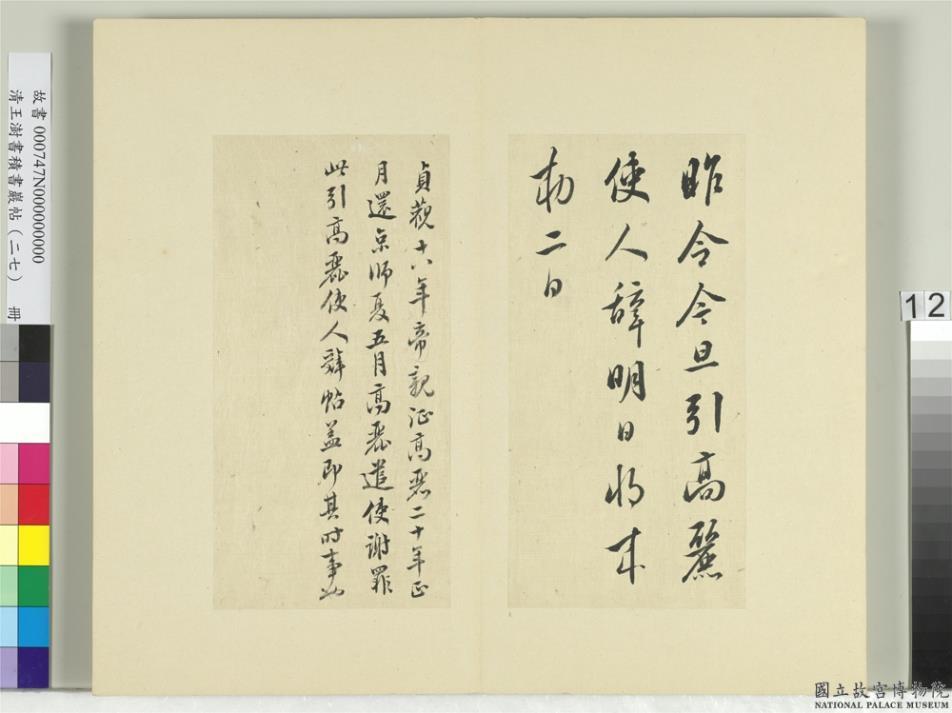 昨令今旦引高麗
使人辞明日將来
勅二日
貞觀十八年帝親征高麗二十年正
月還京師夏五月高麗遣使謝罪
此引高麗使人辭帖蓋即其時事也
故書 000747N000000000
清王澍書積書巖帖(二七) 冊
12
國立故宮博物院
NATIONAL PALACE MUSEUM